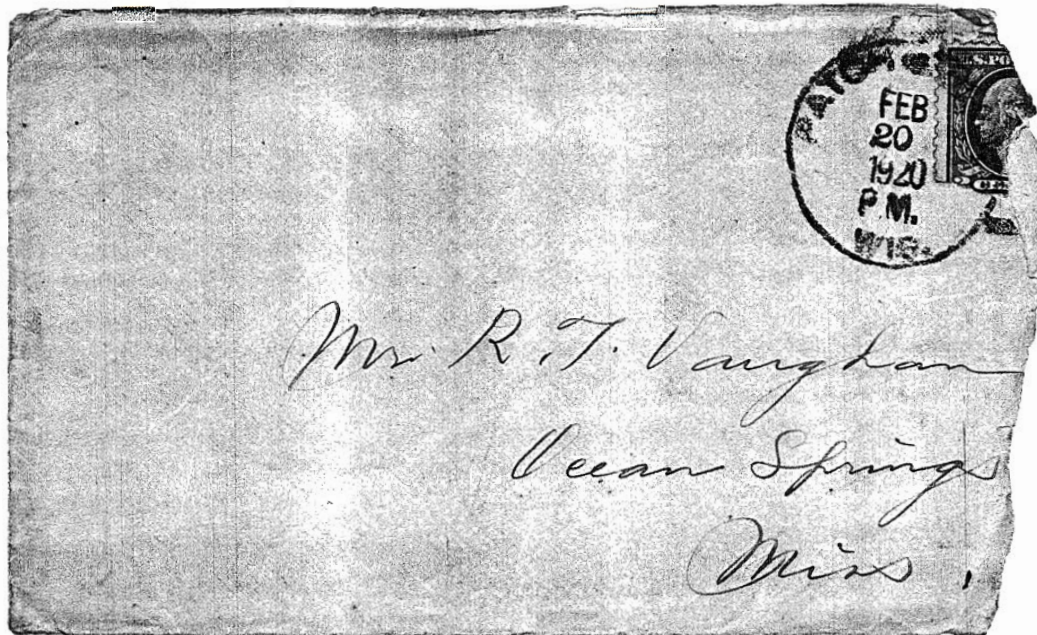 FEB
20
1920
P.M.
WIS.
Mr. R. T. Vaughan
Ocean Springs
Miss.